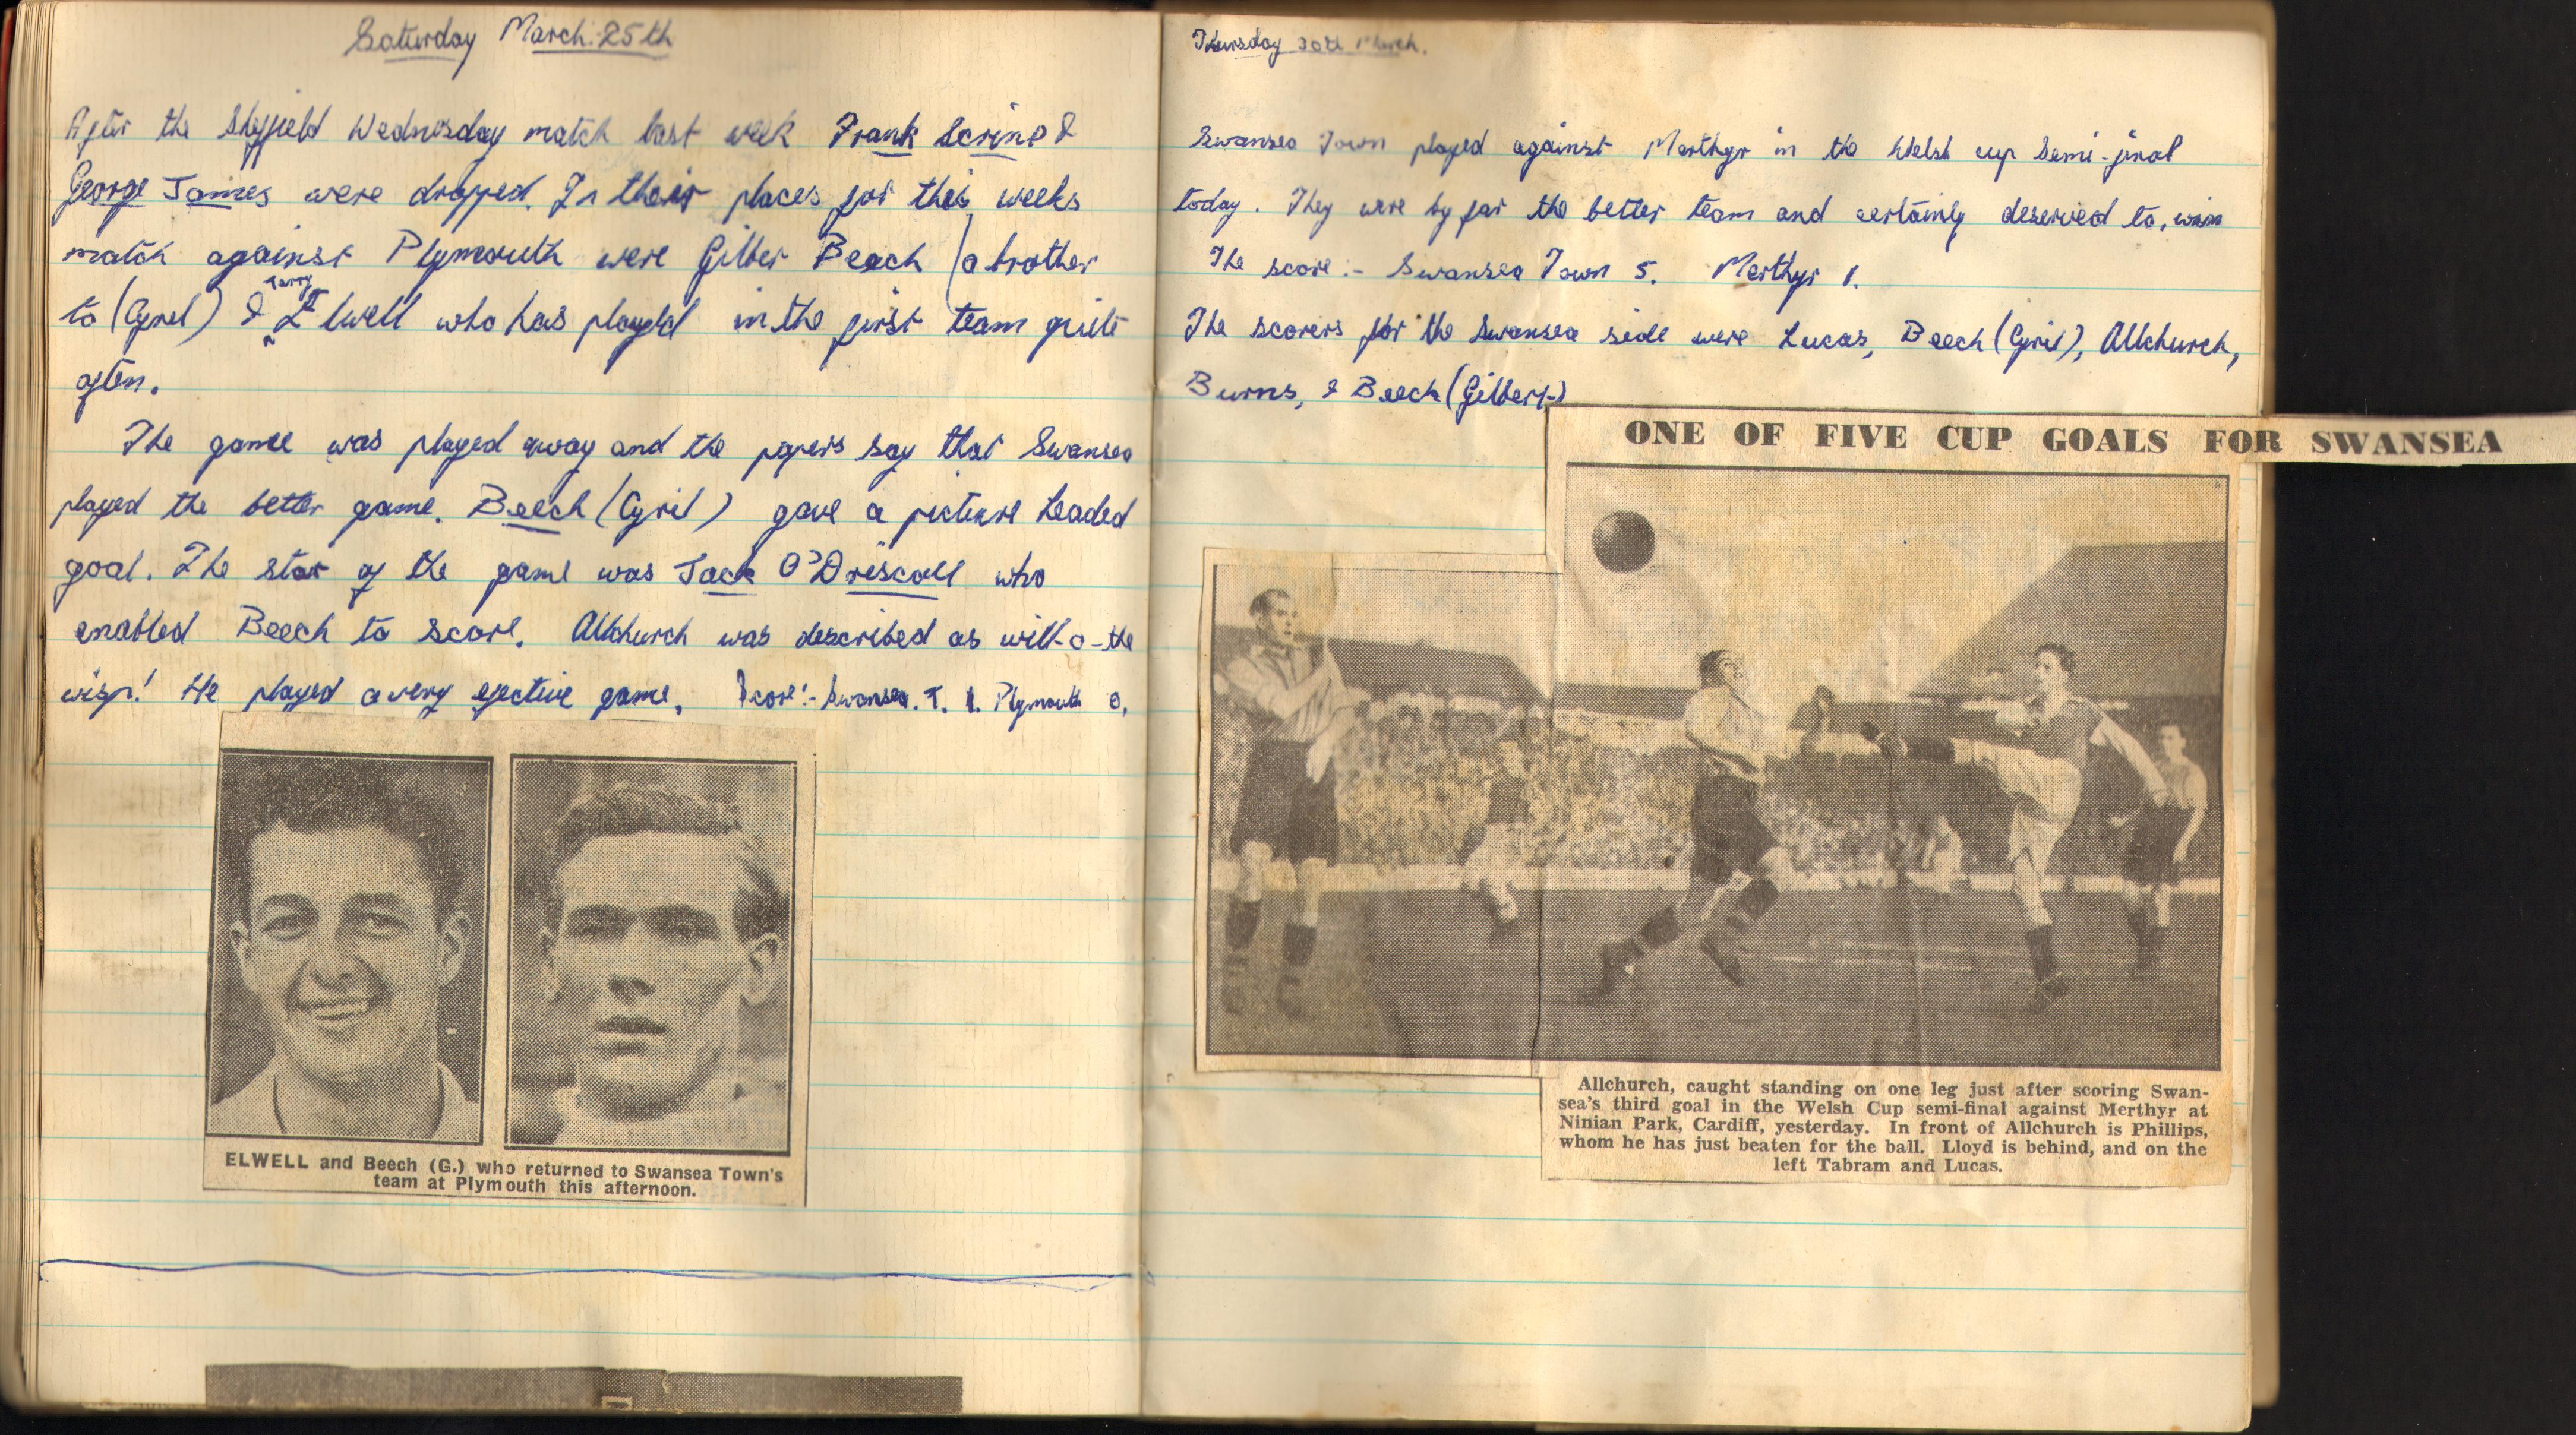 Saturday March 25th
After the Sheffield Wednesday match last week Frank Scrine &
George James were dropped. In their places for this weeks
match against Plymouth were Gilber Beech (a brother
to (Cyril) & Terry Elwell who has played in the first team quite
often.
The game was played away and the papers say that Swansea
played the better game. Beech (Cyril) gave a picture headed
goal. The star of the game was Jack O'Driscoll who
enabled Beech to score. Allchurch was described as will-o-the
wisp! He played a very efective game. Score:- Swansea. T. 1. Plymouth 0.
ELWELL and Beech (G.) who returned to Swansea Town's
team at Plymouth this afternoon.
Thursday 30th March.
Swansea Town played against Merthyr in the Welsh cup Semi-final
today. They were by far the better team and certainly deserved to, win
The score:- Swansea Town 5. Merthyr 1.
The scorers for the Swansea side were Lucas, Beech (Cyril), Allchurch,
Burns, & Beech (Gilbert)
ONE OF FIVE CUP GOALS FOR SWANSEA
Allchurch, caught standing on one leg just after scoring Swan-
sea's third goal in the Welsh Cup semi-final against Merthyr at
Ninian Park, Cardiff, yesterday. In front of Allchurch is Phillips,
whom he has just beaten for the ball. Lloyd is behind, and on the
left Tabram and Lucas.